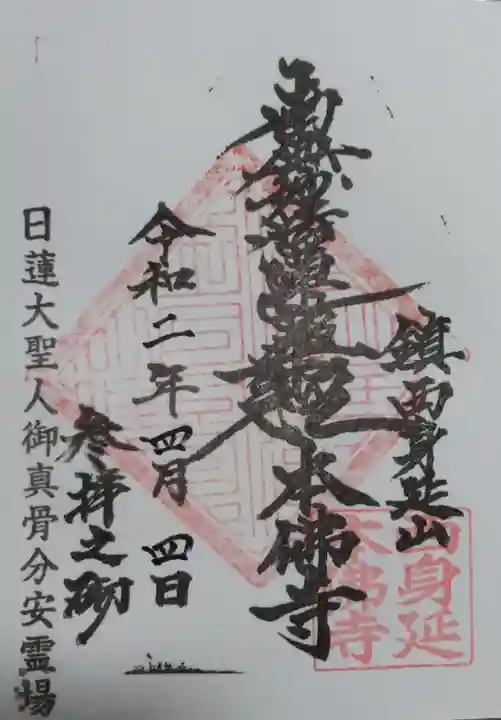 鎮西身延山
南無妙法蓮華経
本佛寺
令和二年 四月 四日
参拝之砌
日蓮大聖人御真骨分安霊場
西身延
本佛寺